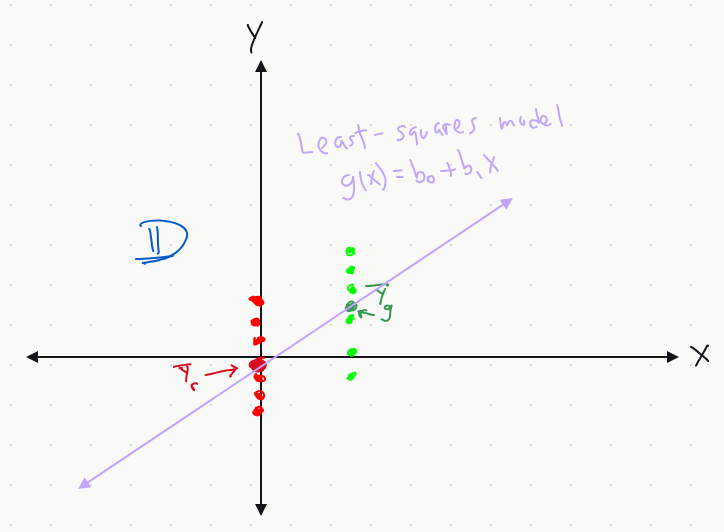 Y
Least-squares model
g(x) = b₀ + b₁x
𝔻
Ȳg
X
Ȳr